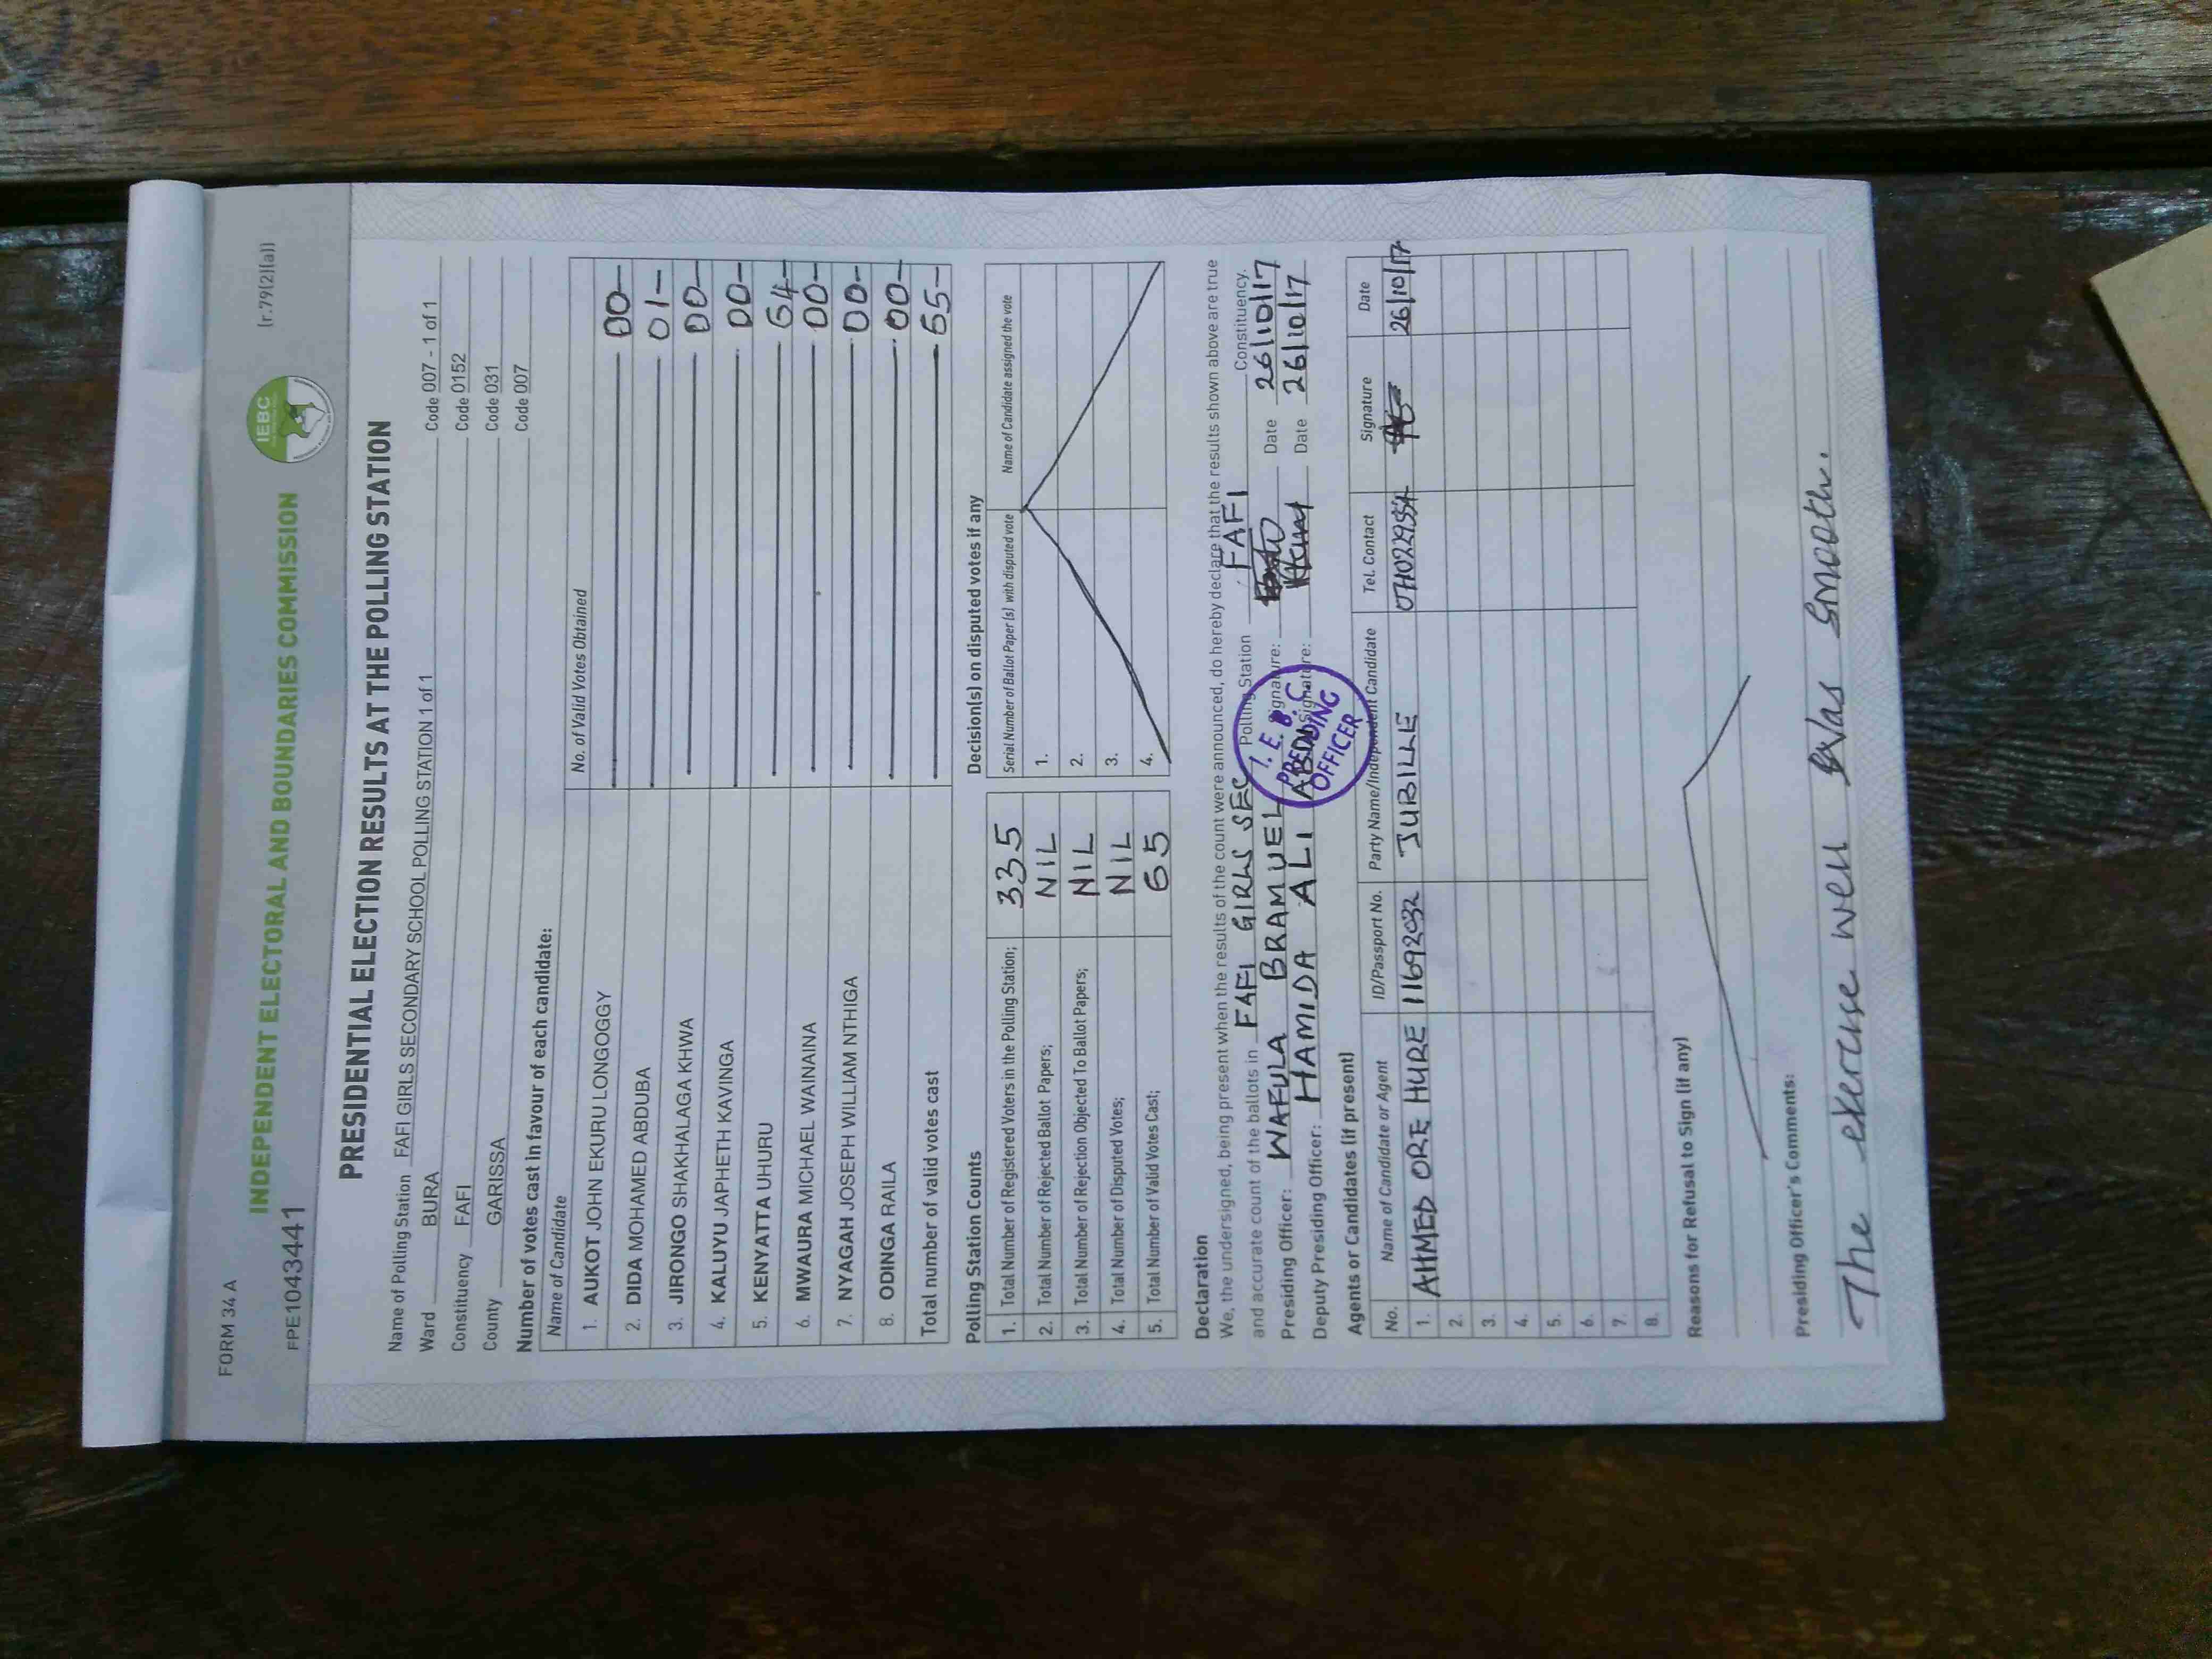 FORM 34 A
(r.79(2)(a))
INDEPENDENT ELECTORAL AND BOUNDARIES COMMISSION
IEBC
FPE1043441
PRESIDENTIAL ELECTION RESULTS AT THE POLLING STATION
Name of Polling Station FAFI GIRLS SECONDARY SCHOOL POLLING STATION 1 of 1 Code 007 - 1 of 1
Ward BURA Code 0152
Constituency FAFI Code 031
County GARISSA Code 007
Number of votes cast in favour of each candidate:
Name of Candidate No. of Valid Votes Obtained
1. AUKOT JOHN EKURU LONGOGGY 00
2. DIDA MOHAMED ABDUBA 01
3. JIRONGO SHAKHALAGA KHWA 00
4. KALUYU JAPHETH KAVINGA 00
5. KENYATTA UHURU 64
6. MWAURA MICHAEL WAINAINA 00
7. NYAGAH JOSEPH WILLIAM NTHIGA 00
8. ODINGA RAILA 00
Total number of valid votes cast 65
Polling Station Counts
1. Total Number of Registered Voters in the Polling Station; 335
2. Total Number of Rejected Ballot Papers; NIL
3. Total Number of Rejection Objected To Ballot Papers; NIL
4. Total Number of Disputed Votes; NIL
5. Total Number of Valid Votes Cast; 65
Decision(s) on disputed votes if any
Serial Number of Ballot Paper(s) with disputed vote Name of Candidate assigned the vote
1.
2.
3.
4.
Declaration
We, the undersigned, being present when the results of the count were announced, do hereby declare that the results shown above are true
and accurate count of the ballots in FAFI GIRLS SEC Polling Station FAFI Constituency.
Presiding Officer: WAFULA BRAMUEL Signature: Date 26/10/17
Deputy Presiding Officer: HAMIDA ALI ABDI Signature: Date 26/10/17
I.E.B.C
PRESIDING
OFFICER
Agents or Candidates (if present)
No. Name of Candidate or Agent ID/Passport No. Party Name/Independent Candidate Tel. Contact Signature Date
1. AHMED ORE HURE 11692032 JUBILLE 26/10/17
2.
3.
4.
5.
6.
7.
8.
Reasons for Refusal to Sign (if any)
Presiding Officer's Comments:
The exercise well was smooth.